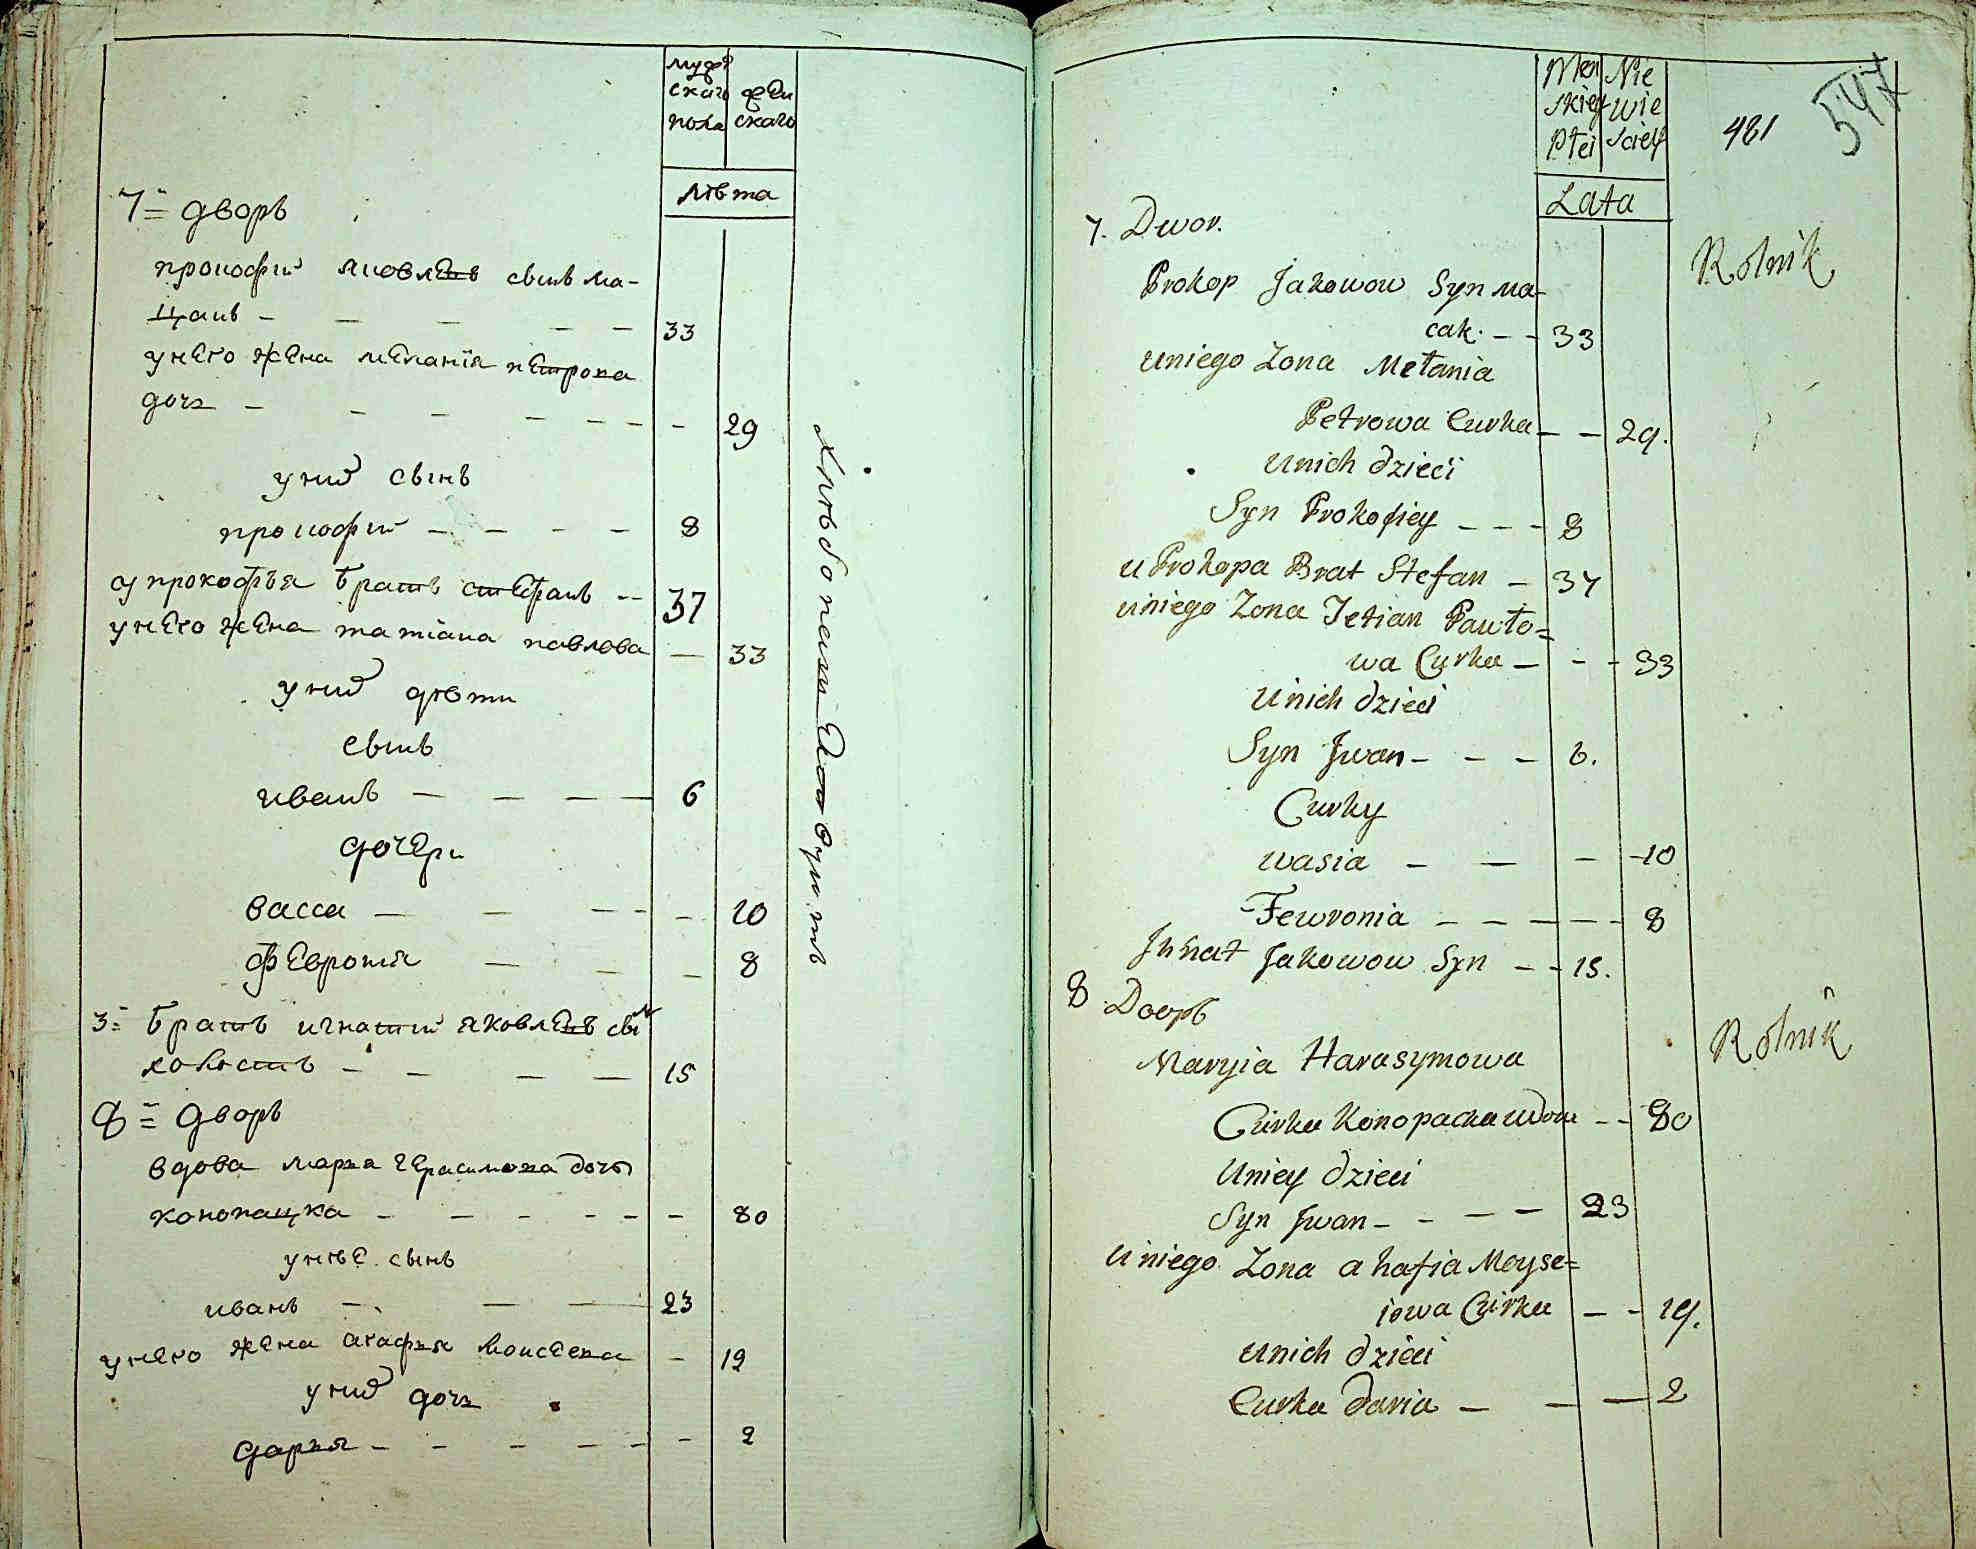 мужѣ
скаго жен
пола скаго
лѣта
7=й дворъ
прокофий яковлевъ сынъ ма-
цакъ - - - - - 33
у него жена мелания петрова
дочь - - - - - - - 29
у них сынъ
прокофий - - - - 8
у прокофья братъ стефанъ -- 37
у него жена татiана павлова — 33
у них дѣти
сынъ
иванъ - - - - 6
дочери
васса - - - - - 10
феврония - - - 8
3=й братъ игнатий яковлевъ сынъ
холостъ - - - - 15
8=й дворъ
вдова марья герасимова дочь
конопацка - - - - - - - 80
у нѣе сынъ
иванъ - - - 23
у него жена агафья моисеева - 19
у них дочь
дарья - - - - - - 2
Męs Nie
skiey wie
Płei sciey
Lata
481
547
7. Dwor.
Rolnik
Prokop Jakowow Syn Ma-
cak. - - 33
uniego Zona Mełania
Petrowa Curka - - 29.
unich dzieci
Syn Prokofiey - - - 8
u Prokopa Brat Stefan - 37
uniego Zona Tetian Pawło=
wa Curka - - - 33
Unich dzieci
Syn Jwan - - - 6.
Curky
wasia - - - - 10
Fewronia - - - - - 8
Jhnat Jakowow Syn - - 15.
8 Dворъ
Rolnik
Maryia Harasymowa
Curka Konopacka wdow - - 80
Uniey dzieci
Syn Jwan - - - - 23
Uniego Zona ahafia Moyse=
iowa Curka - - 19.
unich dzieci
Curka daria - - - 2